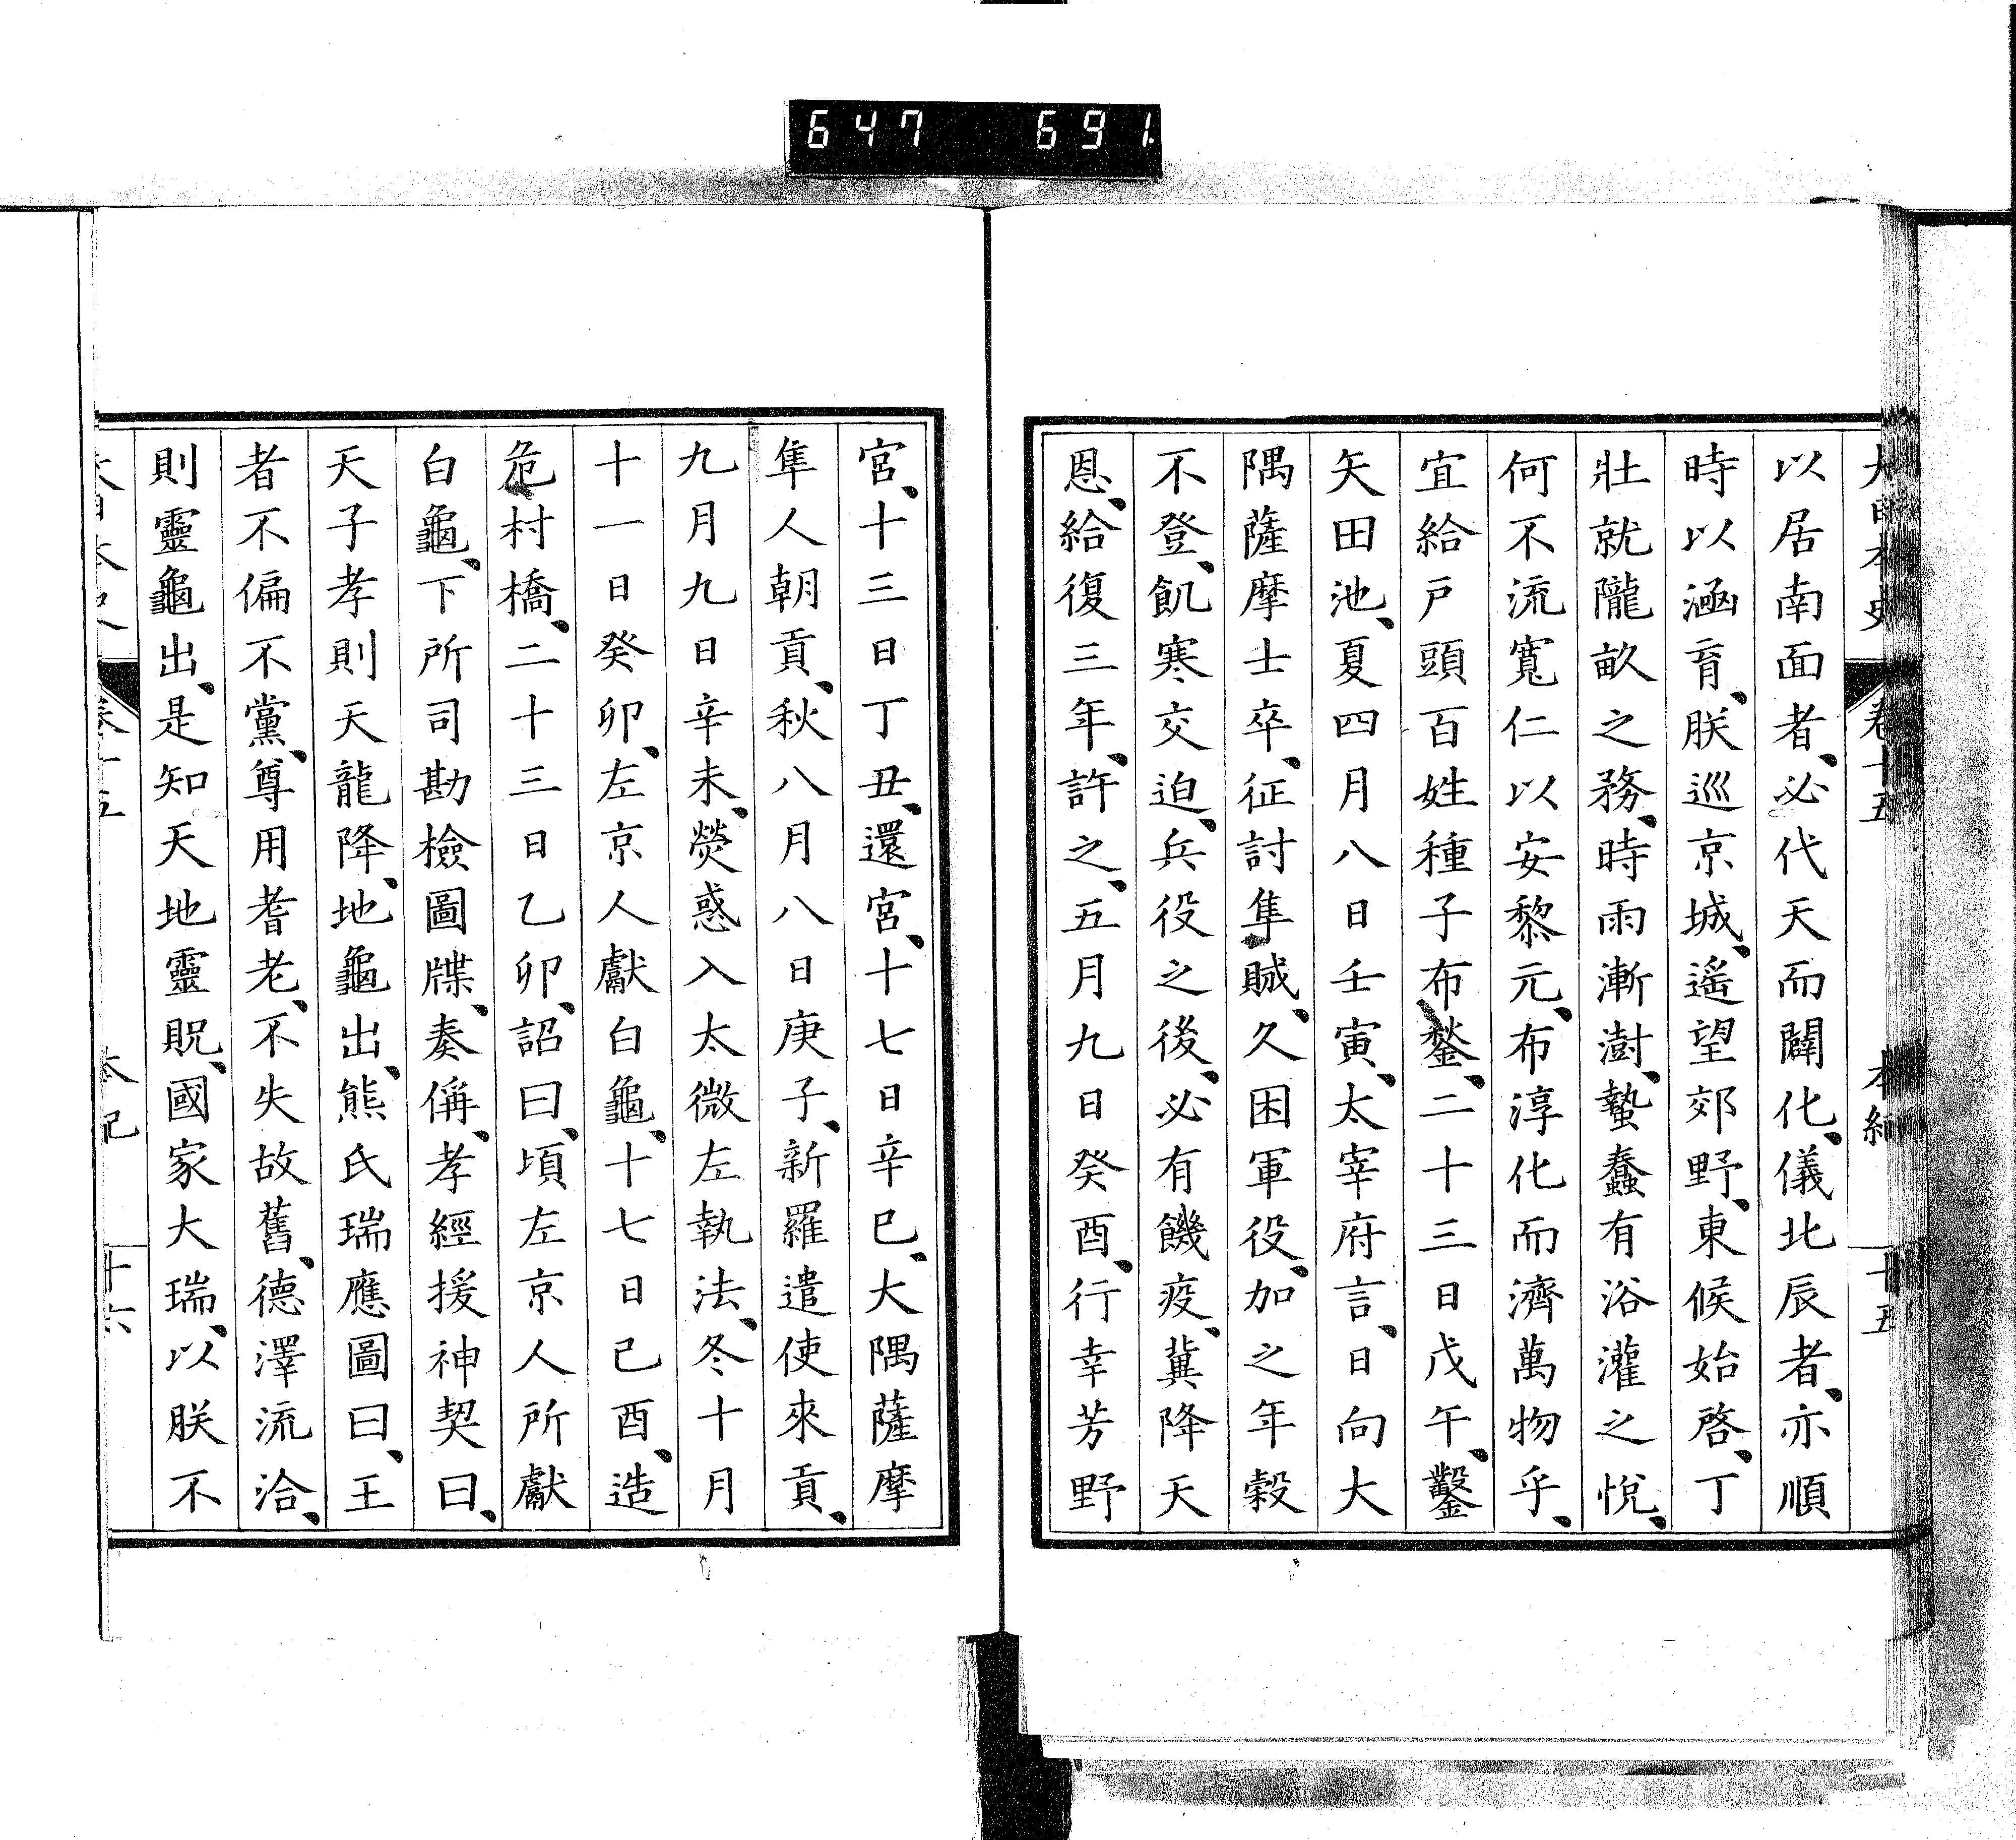 647 691
大日本史 卷十五 本紀 十五
以居南面者、必代天而闢化、儀北辰者、亦順
時以涵育、朕巡京城、遙望郊野、東候始啓、丁
壯就隴畝之務、時雨漸澍、蟄蠢有浴灌之悅、
何不流寬仁以安黎元、布淳化而濟萬物乎、
宜給戸頭百姓種子布鍫、二十三日戊午、鑿
矢田池、夏四月八日壬寅、太宰府言、日向大
隅薩摩士卒、征討隼賊、久困軍役、加之年穀
不登、飢寒交迫、兵役之後、必有饑疫、冀降天
恩、給復三年、許之、五月九日癸酉、行幸芳野
宮、十三日丁丑、還宮、十七日辛巳、大隅薩摩
隼人朝貢、秋八月八日庚子、新羅遣使來貢、
九月九日辛未、熒惑入太微左執法、冬十月
十一日癸卯、左京人獻白龜、十七日己酉、造
危村橋、二十三日乙卯、詔曰、頃左京人所獻
白龜、下所司勘檢圖牒、奏偁、孝經援神契曰、
天子孝則天龍降、地龜出、熊氏瑞應圖曰、王
者不偏不黨、尊用耆老、不失故舊、德澤流洽、
則靈龜出、是知天地靈貺、國家大瑞、以朕不
大日本史 卷十五 本紀 十六